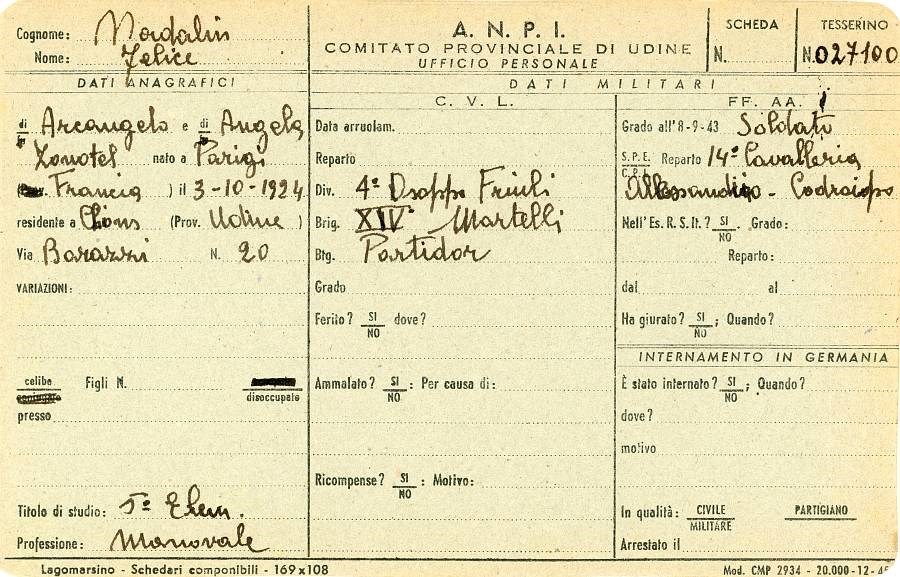 Cognome: Nadalin
Nome: Felice
A. N. P. I.
COMITATO PROVINCIALE DI UDINE
UFFICIO PERSONALE
SCHEDA
N.
TESSERINO
N. 027100
DATI ANAGRAFICI
di Arcangelo e di Angela
Zanotel nato a Parigi
Francia ) il 3-10-1924
residente a Lions (Prov. Udine )
Via Barazzi N. 20
VARIAZIONI:
celibe Figli N.
disoccupato
presso
Titolo di studio: 5ª Elem.
Professione: Manovale
DATI MILITARI
C. V. L.
Data arruolam.
Reparto
Div. 4ª Osoppo Friuli
Brig. XIV Martelli
Btg. Partidor
Grado
Ferito? SI NO dove?
Ammalato? SI NO : Per causa di:
Ricompense? SI NO : Motivo:
FF. AA.
Grado all'8-9-43 Soldato
S.P.E. C.P.L. Reparto 14º Cavalleria
Alessandria - Codroipo
Nell'Es. R. S. It.? SI NO . Grado:
Reparto:
dal al
Ha giurato? SI NO ; Quando?
INTERNAMENTO IN GERMANIA
È stato internato? SI NO ; Quando?
dove?
motivo
In qualità: CIVILE MILITARE PARTIGIANO
Arrestato il
Lagomarsino - Schedari componibili - 169x108
Mod. CMP 2934 - 20.000-12-45